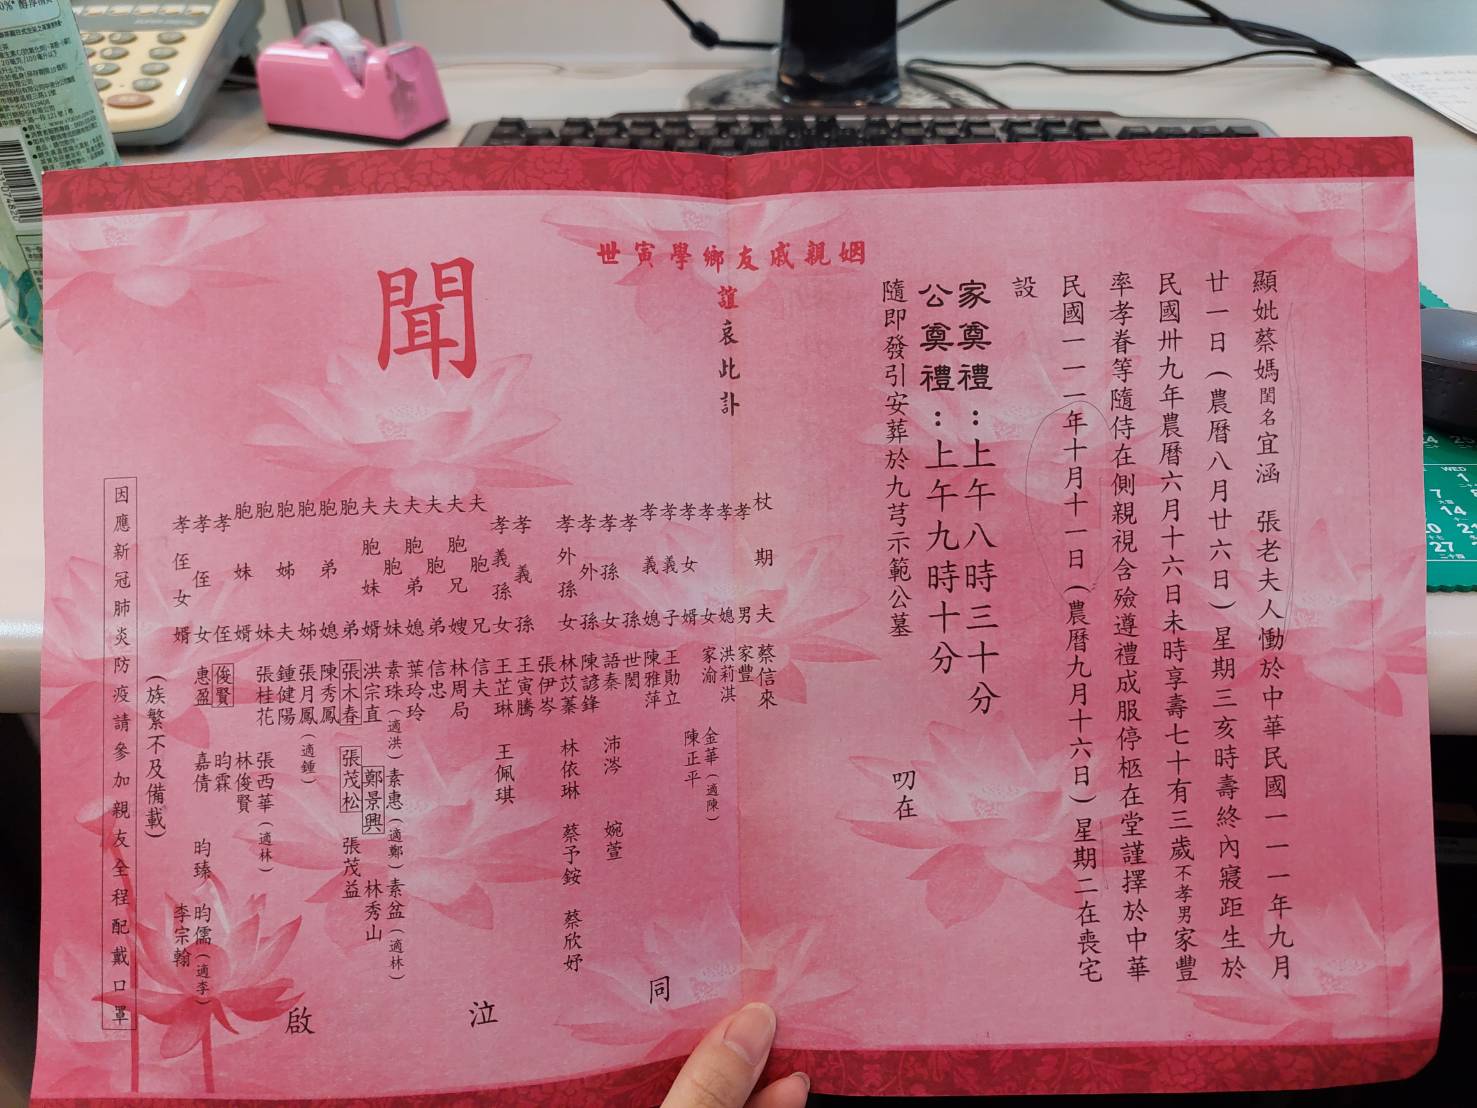 顯妣蔡媽閨名宜涵 張老夫人慟於中華民國一一一年九月
廿一日(農曆八月廿六日)星期三亥時壽終內寢距生於
民國卅九年農曆六月十六日未時享壽七十有三歲不孝男家豐
率孝眷等隨侍在側親視含殮遵禮成服停柩在堂謹擇於中華
民國一一一年十月十一日(農曆九月十六日)星期二在喪宅
設
家奠禮:上午八時三十分
公奠禮:上午九時十分
隨即發引安葬於九芎示範公墓
叨在
姻親戚友鄉學寅世
誼哀此訃
聞
杖期夫 蔡信來
孝男 家豐
孝媳 洪莉淇
孝女 家渝 金華(適陳)
孝女婿 陳正平
孝義子 王勛立
孝義媳 陳雅萍
孝孫 世閎
孝孫女 語秦 沛涔 婉萱
孝外孫 陳諺鋒
孝外孫女 林苡蓁 林依琳 蔡予銨 蔡欣妤
張伊岑
孝義孫 王寅騰
孝義孫女 王芷琳 王佩琪
夫胞兄 信夫
夫胞嫂 林周局
夫胞弟 信忠
夫胞弟媳 葉玲玲
夫胞妹 素珠(適洪) 素惠(適鄭) 素盆(適林)
夫胞妹婿 洪宗直 鄭景興 林秀山
胞弟 張木春 張茂松 張茂益
胞弟媳 陳秀鳳
胞姊 張月鳳(適鍾)
胞姊夫 鍾健陽
胞妹 張桂花 張西華(適林)
胞妹婿 林俊賢
孝侄 俊賢 昀霖
孝侄女 惠盈 嘉倩 昀臻 昀儒(適李)
孝侄女婿 李宗翰
(族繁不及備載)
同
泣
啟
因應新冠肺炎防疫請參加親友全程配戴口罩